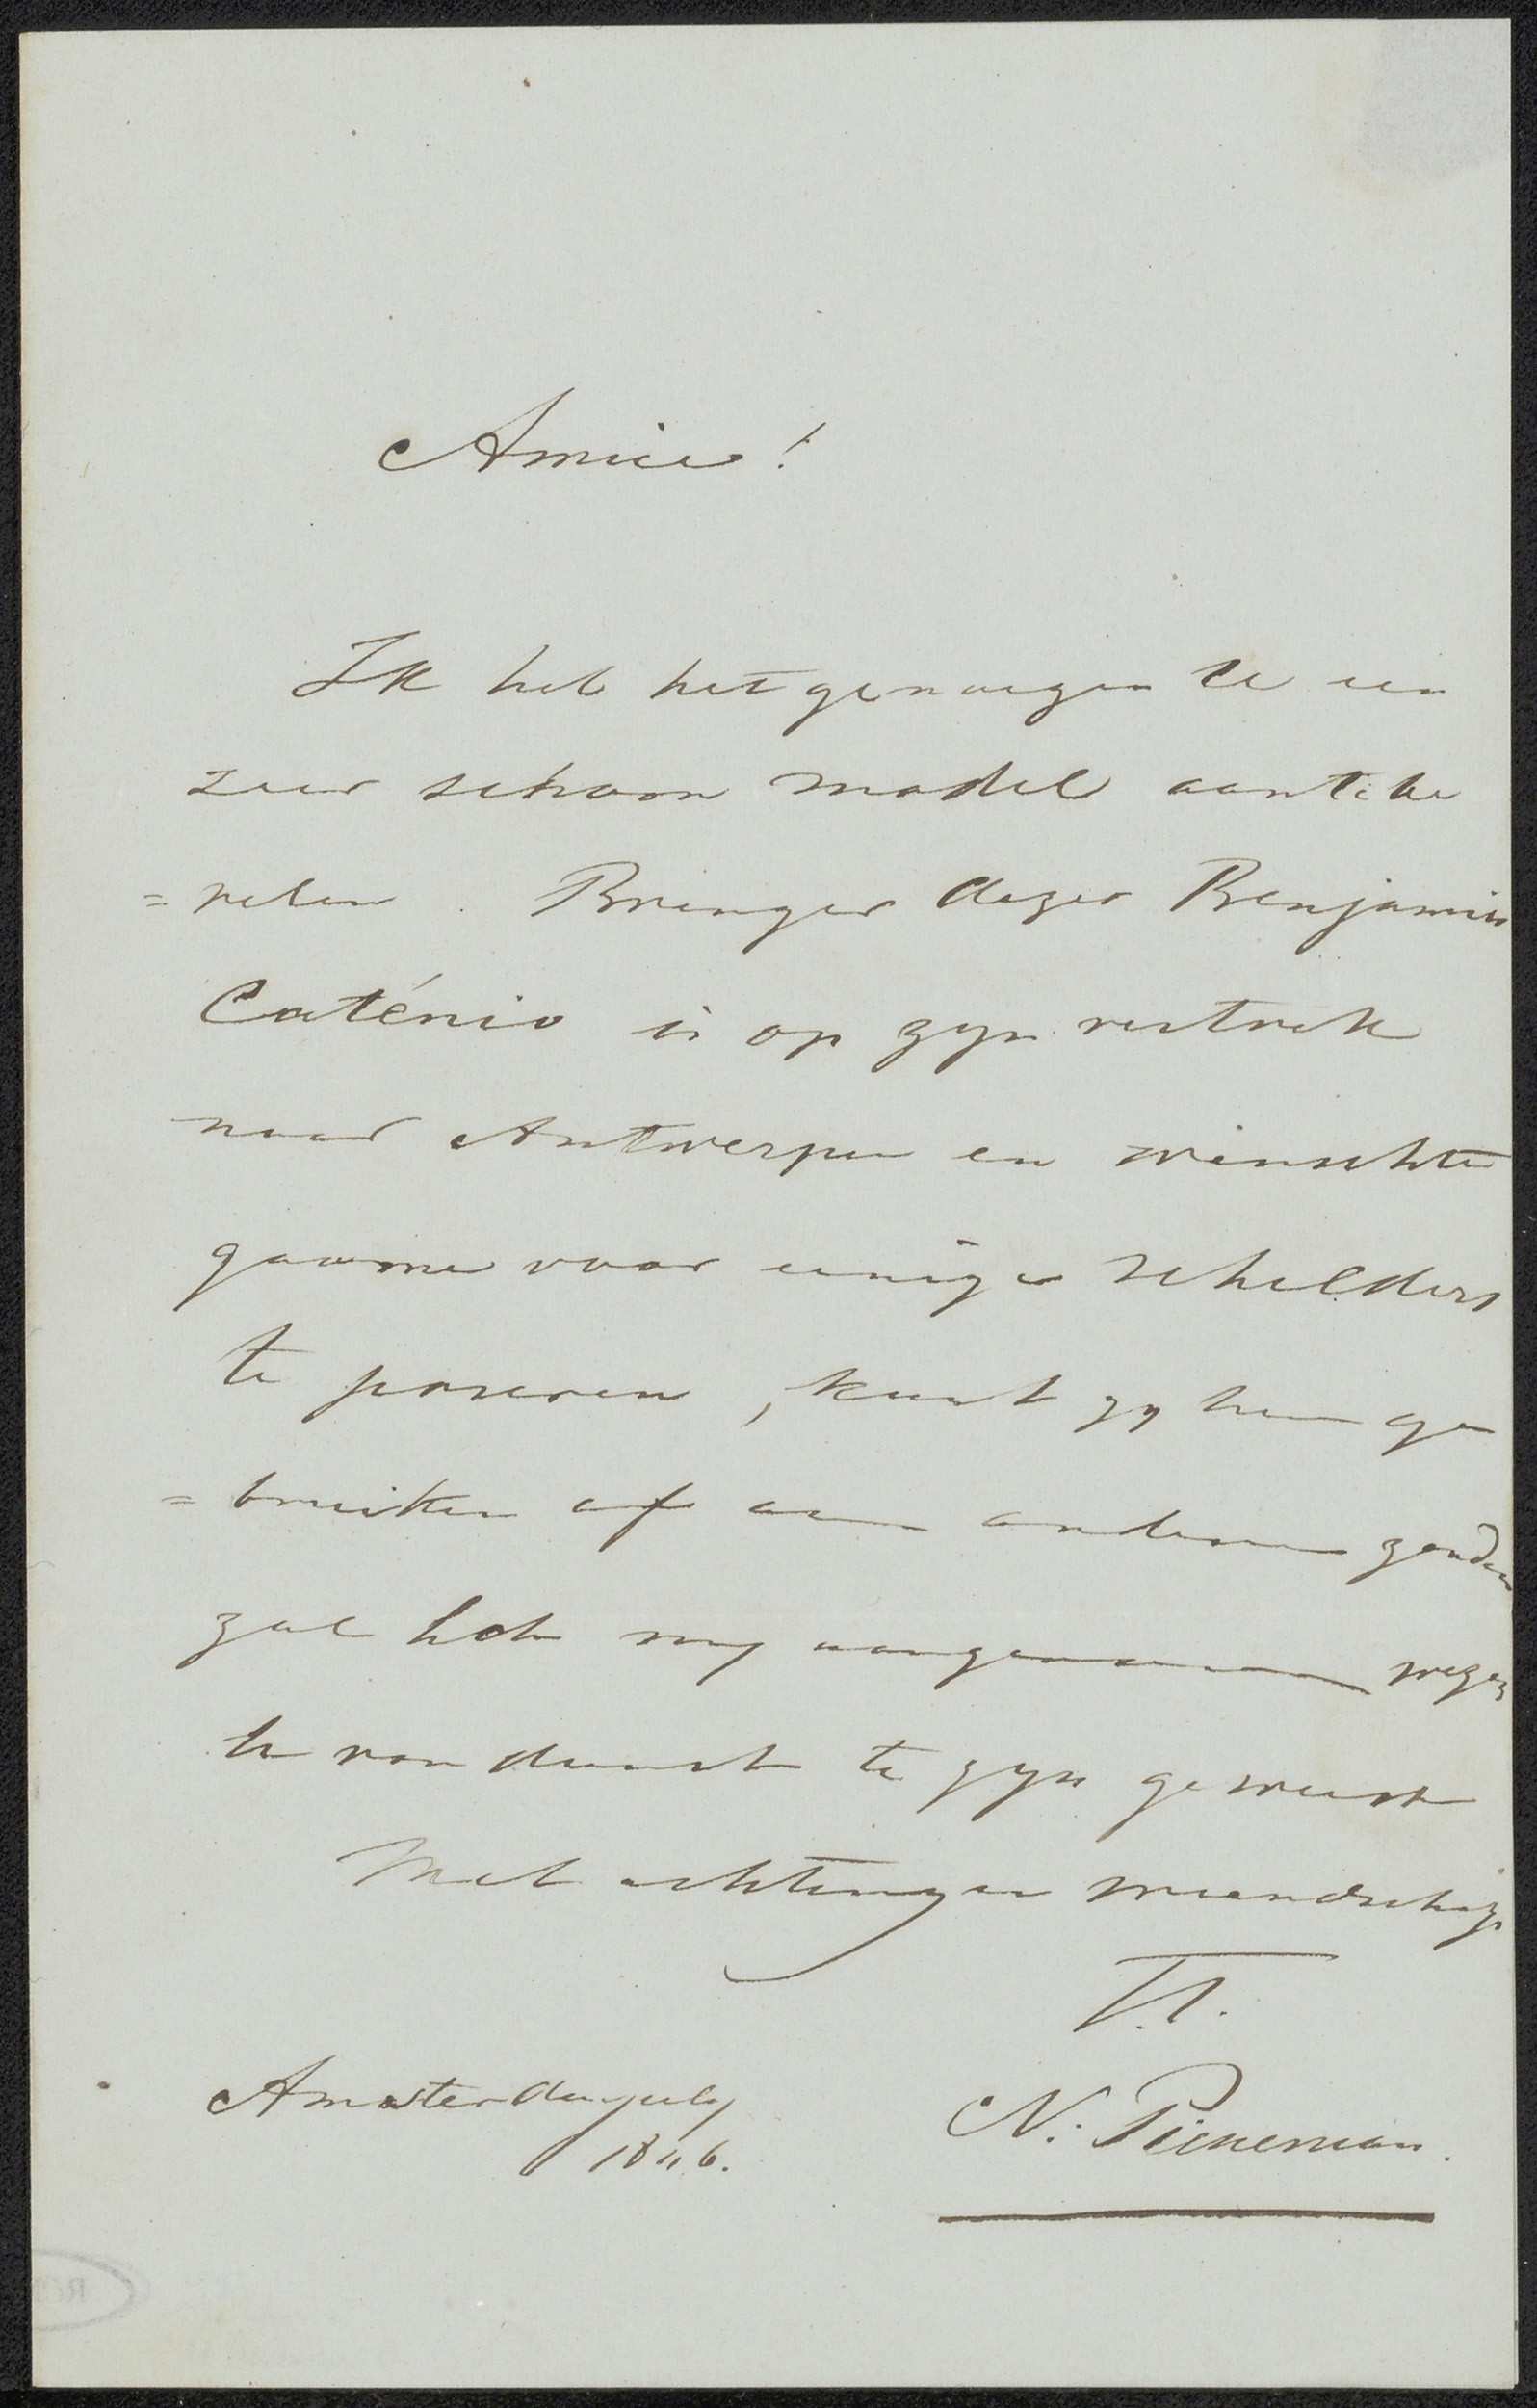 Amice!
Ik heb het genoegen U een
zeer schoon model aantebe
=velen. Brenger dezer Benjamin
Caténio is op zyn vertrek
naar Antwerpen en wenschte
gaarne voor eenige schilders
te poseren, kunt gy hem ge
=bruiken of aan anderen zenden
zal het my aangenaam wezen
U van dienst te zyn geweest
Met achting en vriendschap
T.T.
N: Pieneman.
Amsterdam july
1846.